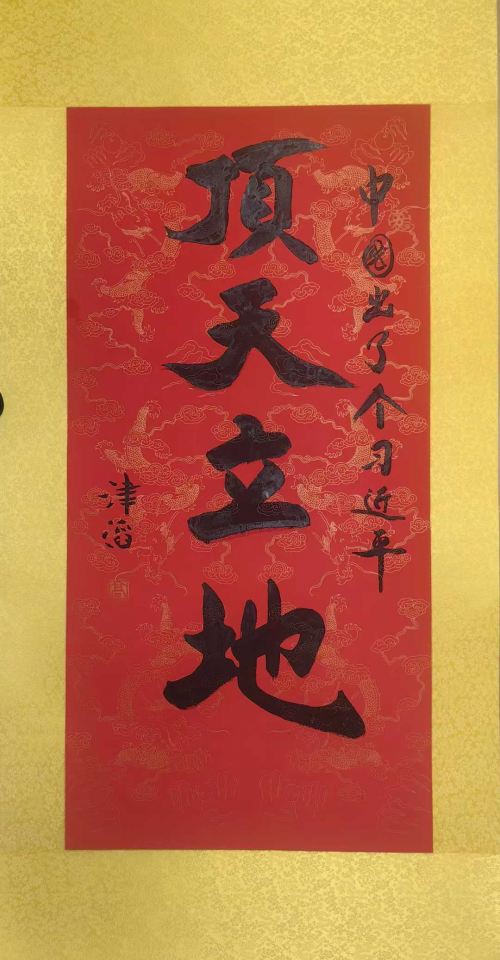 中國出了个习近平
頂天立地
津滔